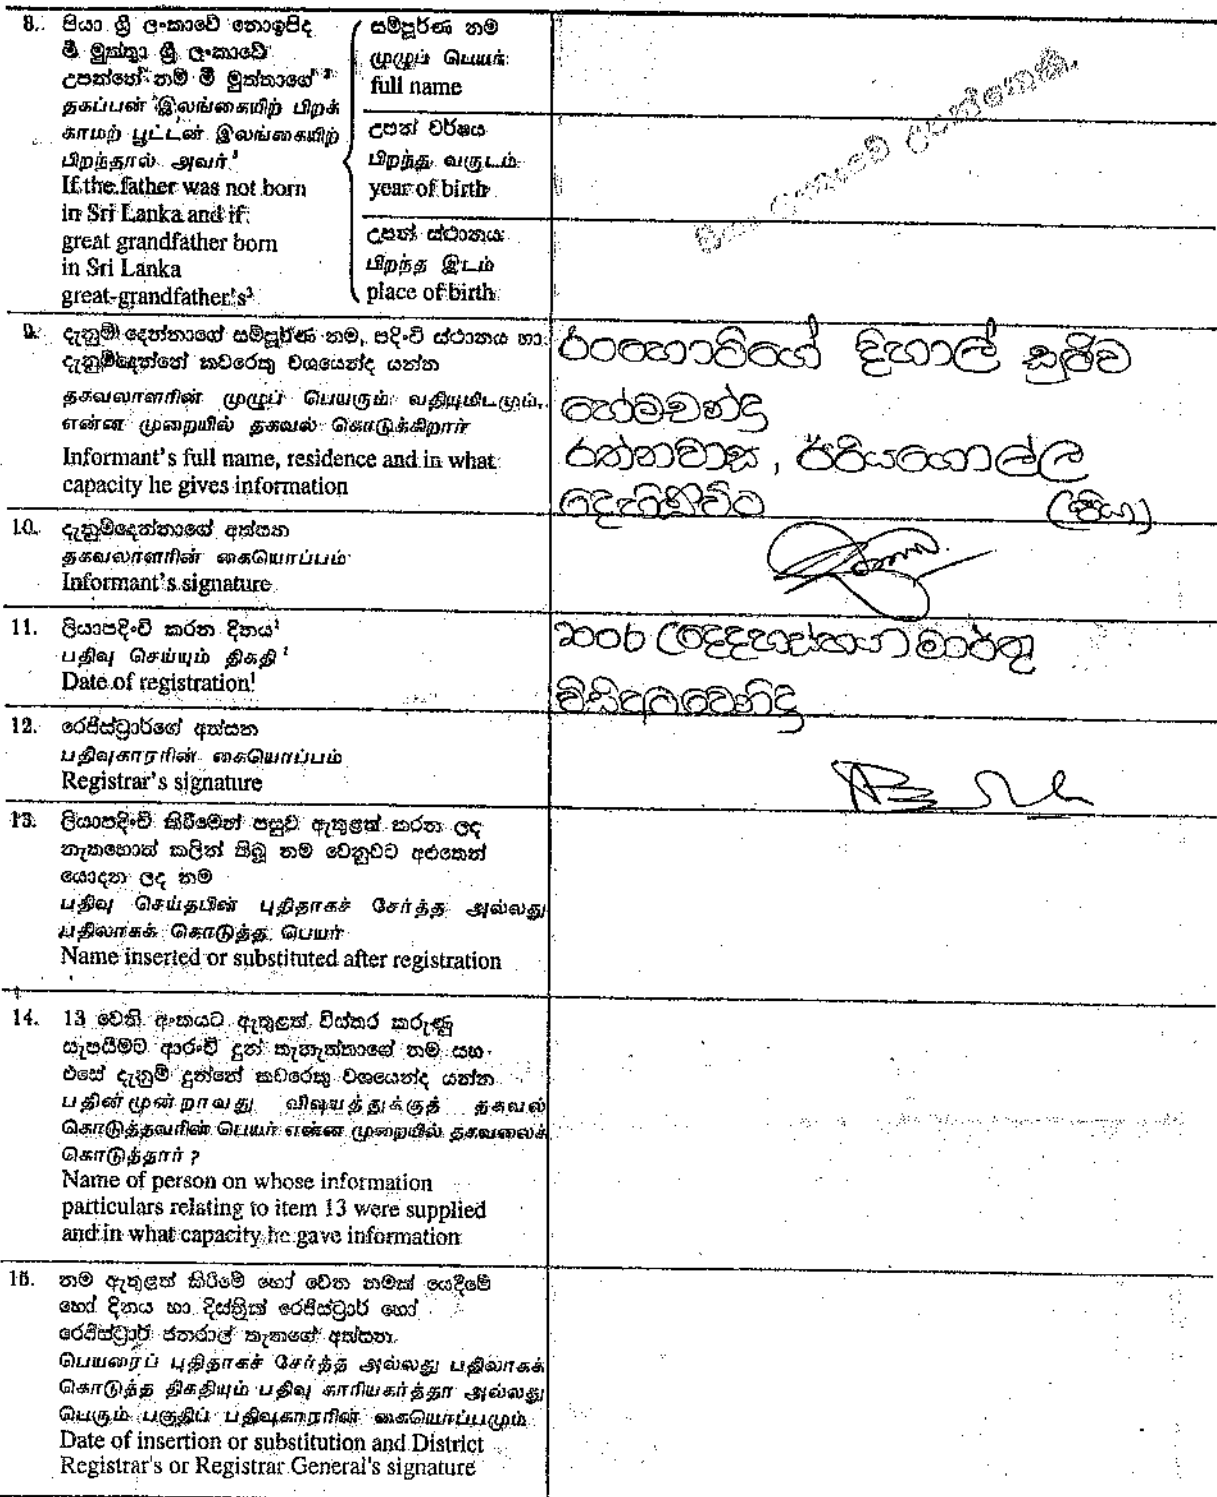 8. පියා ශ්‍රී ලංකාවේ නොඉපිද
මී මුත්තා ශ්‍රී ලංකාවේ
උපන්නේ නම් මී මුත්තාගේ ³
தகப்பன் இலங்கையிற் பிறக்
காமற் பூட்டன் இலங்கையிற்
பிறந்தால் அவர் ³
If the father was not born
in Sri Lanka and if
great grandfather born
in Sri Lanka
great-grandfather's³
සම්පූර්ණ නම
முழுப் பெயர்
full name
උපන් වර්ෂය
பிறந்த வருடம்
year of birth
උපන් ස්ථානය
பிறந்த இடம்
place of birth
ලංකාවේ උපන්නෙකි.
9. දැනුම් දෙන්නාගේ සම්පූර්ණ නම, පදිංචි ස්ථානය හා
දැනුම්දෙන්නේ කවරෙකු වශයෙන්ද යන්න
தகவலாளரின் முழுப் பெயரும் வதியுமிடமும்,
என்ன முறையில் தகவல் கொடுக்கிறார்
Informant's full name, residence and in what
capacity he gives information
රංහොටිගේ දිහාල් සුජීව
හේමචන්ද්‍ර
රත්නවාස, ඊරියගොල්ල
දෙහිවිට (පියා)
10. දැනුම්දෙන්නාගේ අත්සන
தகவலாளரின் கையொப்பம்
Informant's signature
11. ලියාපදිංචි කරන දිනය¹
பதிவு செய்யும் திகதி ¹
Date of registration¹
2006 උදෙදහස්හයා මාර්තු
විසිඅටවෙනිදා
12. රෙජිස්ට්‍රාර්ගේ අත්සන
பதிவுகாரரின் கையொப்பம்
Registrar's signature
13. ලියාපදිංචි කිරීමෙන් පසුව ඇතුළත් කරන ලද
නැතහොත් කලින් තිබූ නම වෙනුවට අළුතෙන්
යොදන ලද නම
பதிவு செய்தபின் புதிதாகச் சேர்த்த அல்லது
பதிலாகக் கொடுத்த பெயர்
Name inserted or substituted after registration
14. 13 වෙනි අංකයට ඇතුළත් විස්තර කරුණු
සැපයීමට ආරංචි දුන් තැනැත්තාගේ නම සහ
එසේ දැනුම් දුන්නේ කවරෙකු වශයෙන්ද යන්න
பதின்மூன்றாவது விஷயத்துக்குத் தகவல்
கொடுத்தவரின் பெயர் என்ன முறையில் தகவலைக்
கொடுத்தார் ?
Name of person on whose information
particulars relating to item 13 were supplied
and in what capacity he gave information
15. නම ඇතුළත් කිරීමේ හෝ වෙන නමක් යෙදීමේ
හෝ දිනය හා දිස්ත්‍රික් රෙජිස්ට්‍රාර් හෝ
රෙජිස්ට්‍රාර් ජනරාල් තැනගේ අත්සන
பெயரைப் புதிதாகச் சேர்த்த அல்லது பதிலாகக்
கொடுத்த திகதியும் பதிவு காரியகர்த்தா அல்லது
பெரும் பகுதிப் பதிவுகாரரின் கையொப்பமும்
Date of insertion or substitution and District
Registrar's or Registrar General's signature